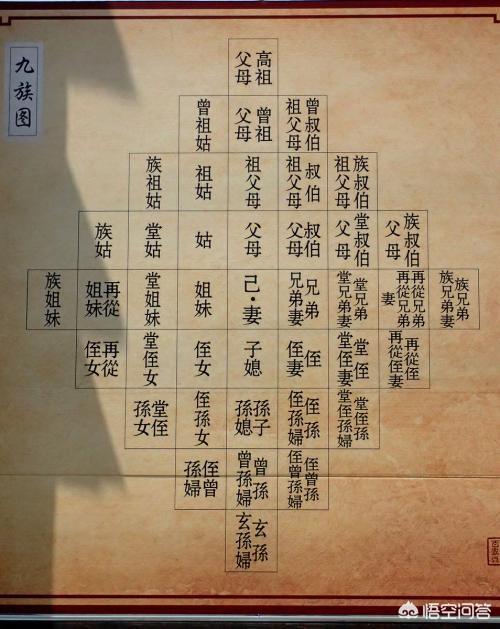 九族图
高祖父母
曾祖姑
曾祖父母
曾叔伯祖父母
族祖姑
祖姑
祖父母
叔伯祖父母
族叔伯祖父母
族姑
堂姑
姑
父母
叔伯父母
堂叔伯父母
族叔伯父母
族姐妹
再從姐妹
堂姐妹
姐妹
己·妻
兄弟
兄弟妻
堂兄弟
堂兄弟妻
再從兄弟
再從兄弟妻
族兄弟
族兄弟妻
再從侄女
堂侄女
侄女
子媳
侄
侄妻
堂侄
堂侄妻
再從侄
再從侄妻
堂侄孫女
侄孫女
孫子
孫媳
侄孫
侄孫婦
堂侄孫
堂侄孫婦
侄曾孫婦
曾孫
曾孫婦
侄曾孫
侄曾孫婦
玄孫
玄孫婦
悟空问答